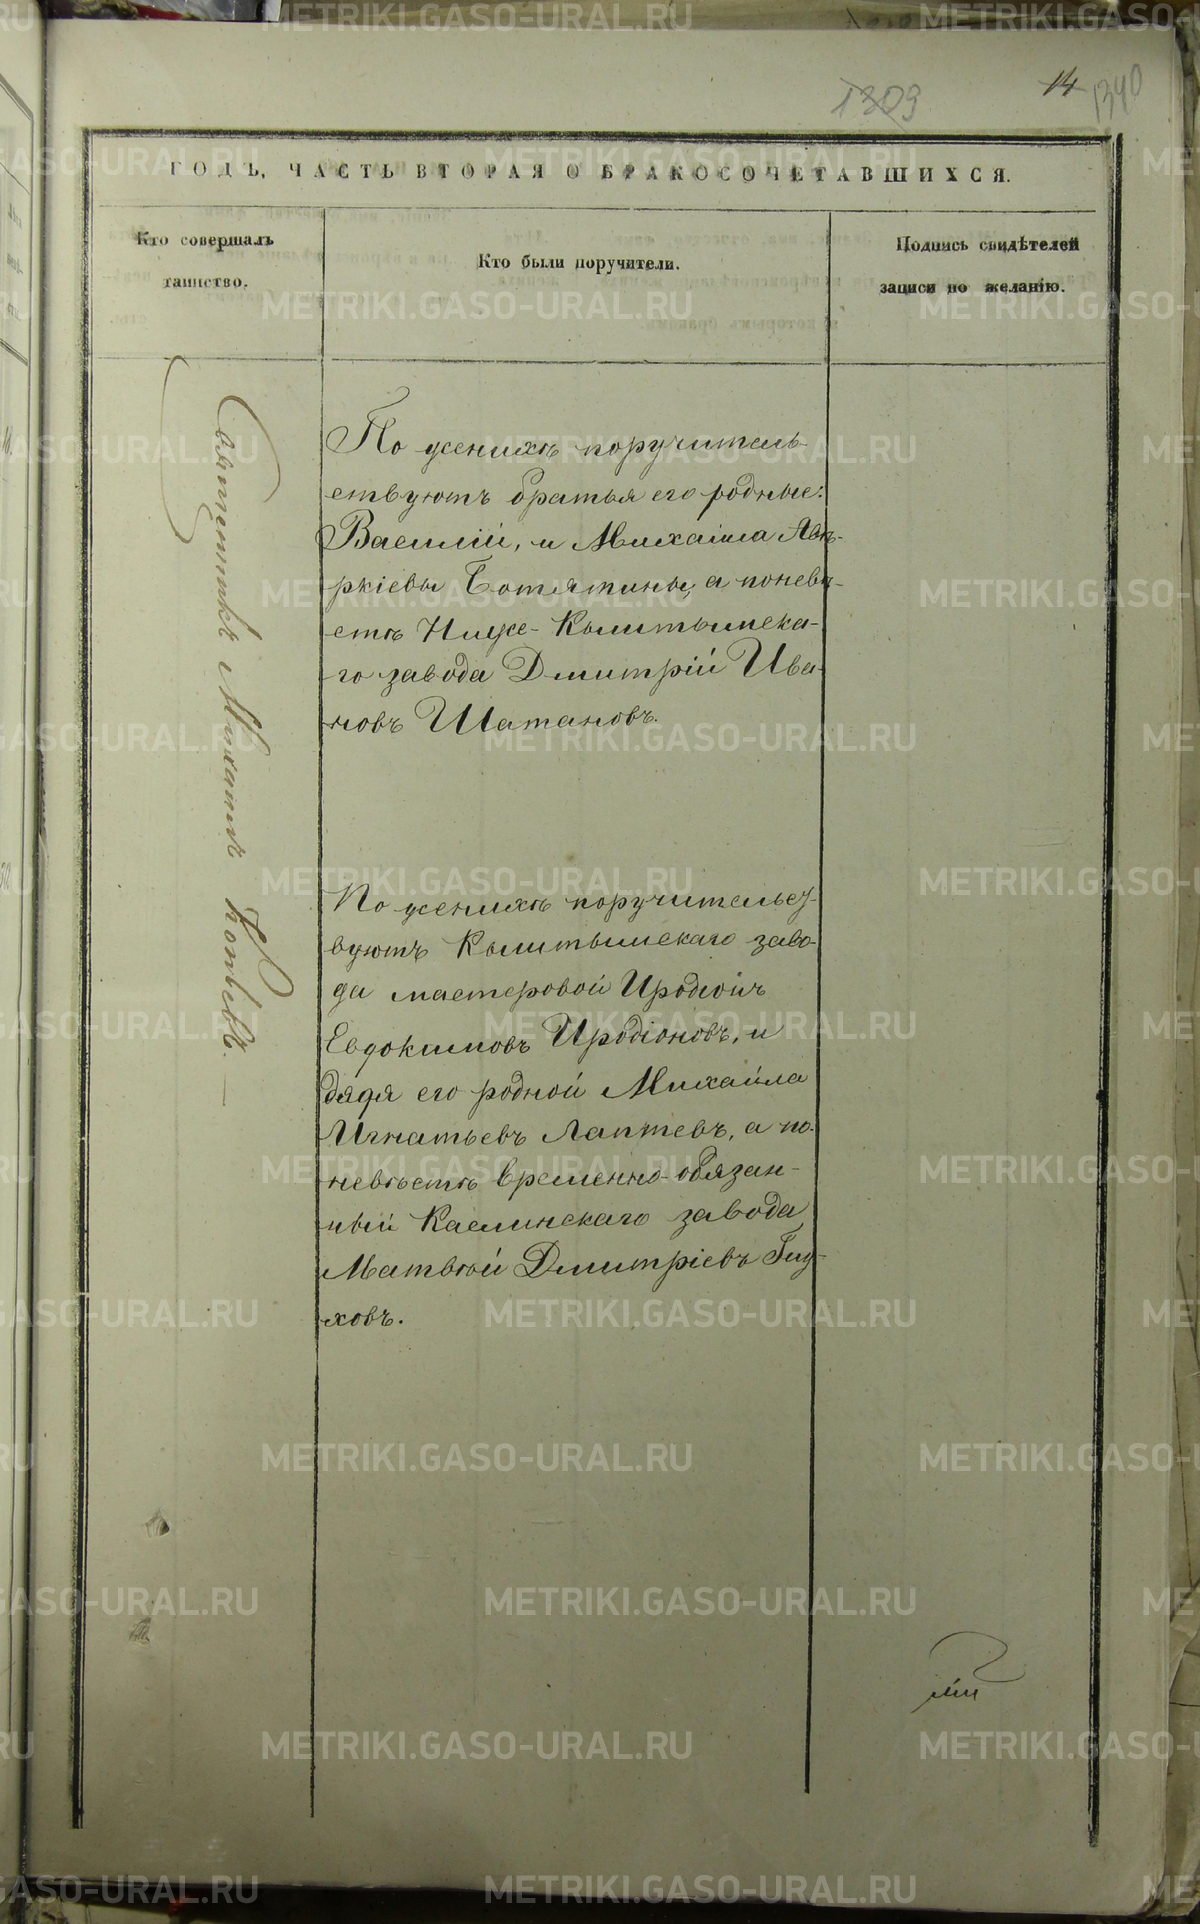 1303
14
1340
ГОДЪ, ЧАСТЬ ВТОРАЯ О БРАКОСОЧЕТАВШИХСЯ.
Кто совершалъ
таинство.
Кто были поручители.
Подпись свидѣтелей
записи по желанію.
Священникъ Михаилъ Копьевъ.
По женихѣ поручитель-
ствуютъ братья его родные:
Василій, и Михаила Авѣ-
ркіевы Ботятины, а поневѣ-
стѣ Ниже-Кыштымска-
го завода Дмитрій Ива-
новъ Шатановъ.
По женихѣ поручительст-
вуютъ Кыштымскаго заво-
да мастеровой Иродіонъ
Евдокимовъ Иродіоновъ, и
дядя его родной Михаила
Игнатьевъ Лаптевъ, а по-
невѣстѣ временно-обязан-
ный Каслинскаго завода
Матвѣй Дмитріевъ Глу-
ховъ.
METRIKI.GASO-URAL.RU